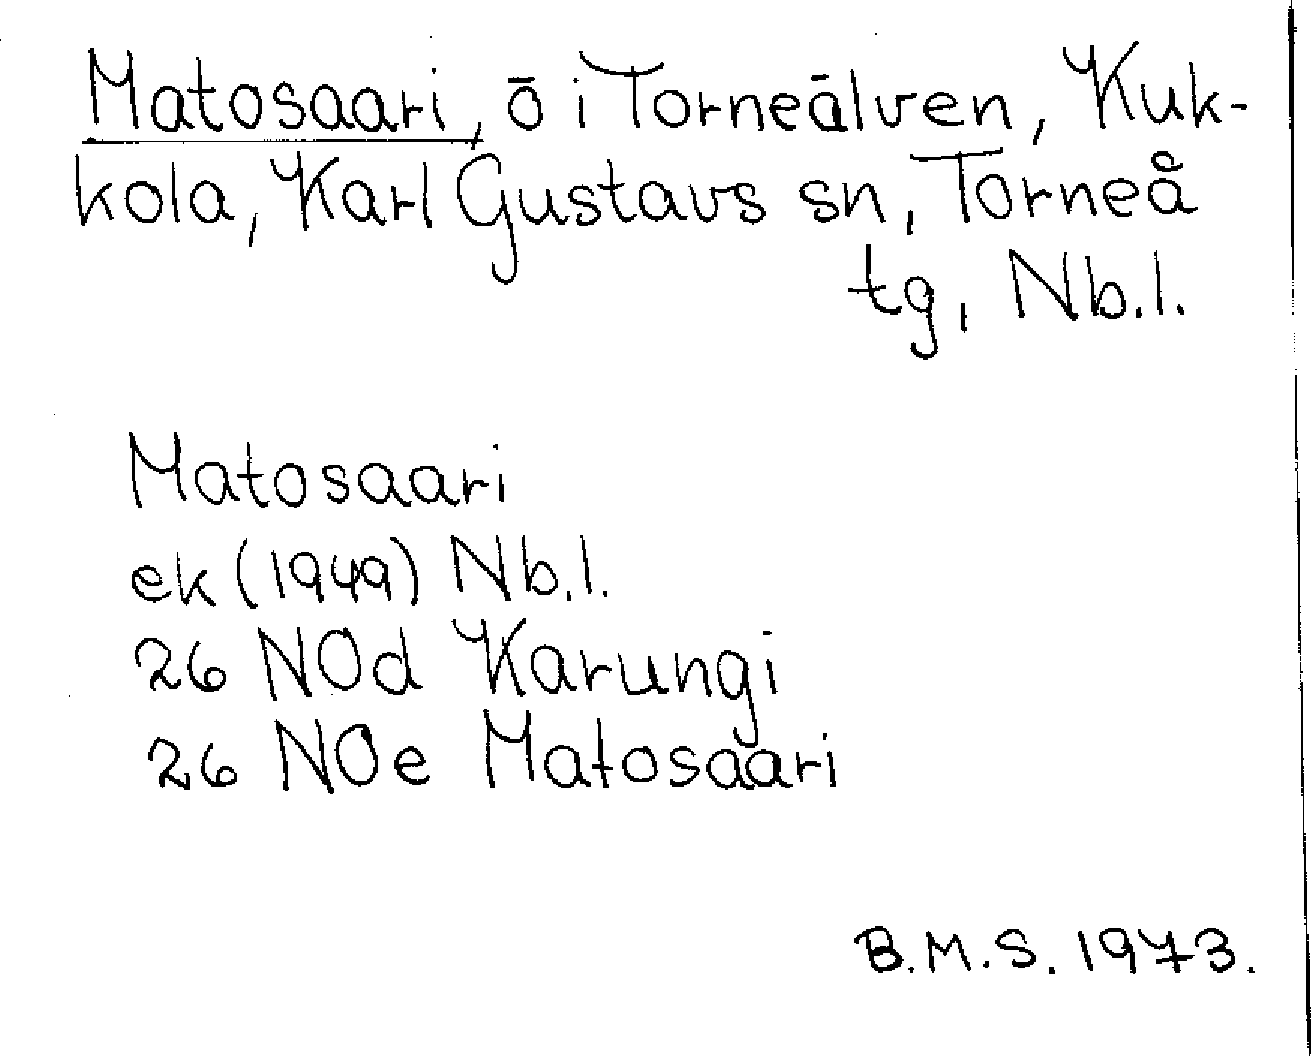 Matosaari, ö i Torneälven, Kuk-
kola, Karl Gustavs sn, Torneå
tg, Nb.l.
Matosaari
ek (1949) Nb.l.
26 NOd Karungi
26 NOe Matosaari
B.M.S. 1973.